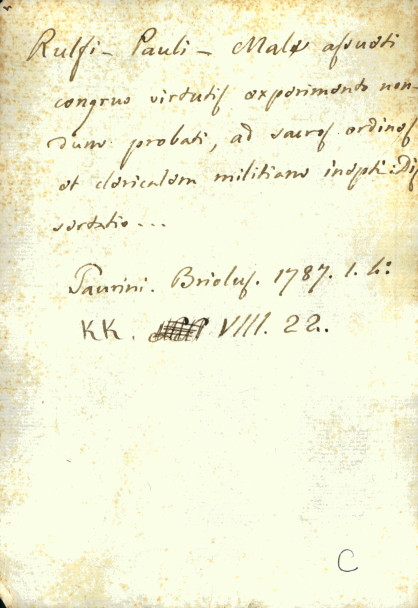 Rulfi - Pauli - Male assueti
congruo virtutis experimento non-
dum probati, ad sacros ordines
et clericalem militiam inepti: Dis
sertatio...
Taurini. Briolus. 1787. 1. 4.º
KK. VIII. 22.
C